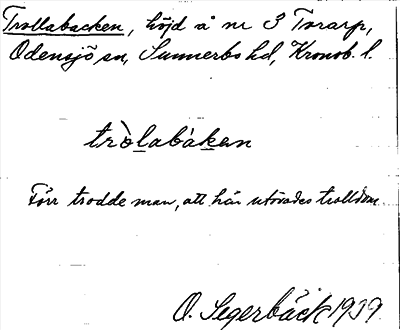 Trollabacken, höjd å nr 3 Torarp,
Odensjö sn, Sunnerbo hd, Kronob. l.
tròlabàkan
Förr trodde man, att här utövades trolldom.
O. Segerbäck 1939